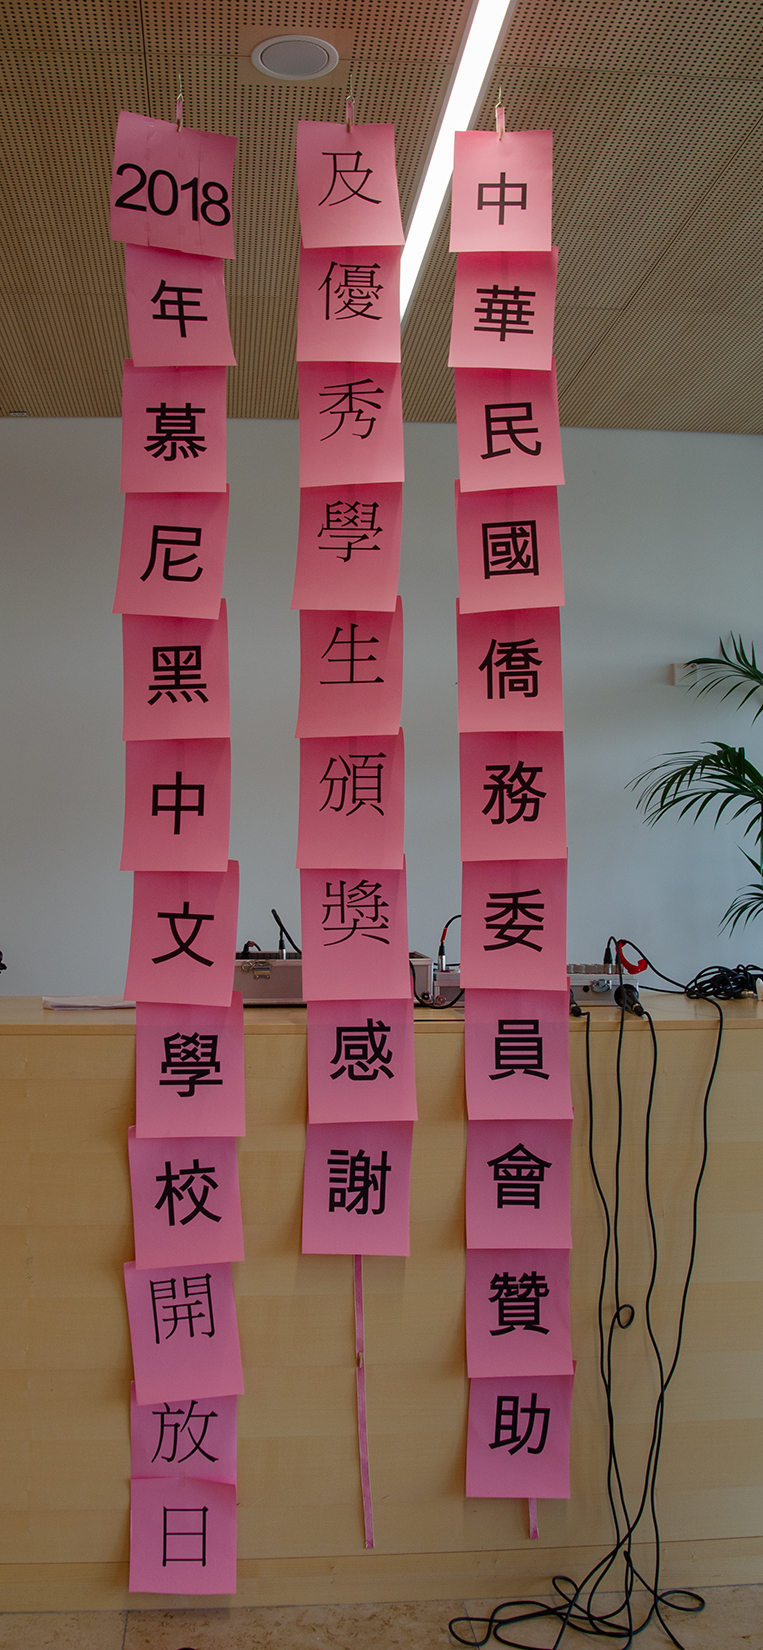 2018年慕尼黑中文學校開放日
及優秀學生頒獎感謝
中華民國僑務委員會贊助